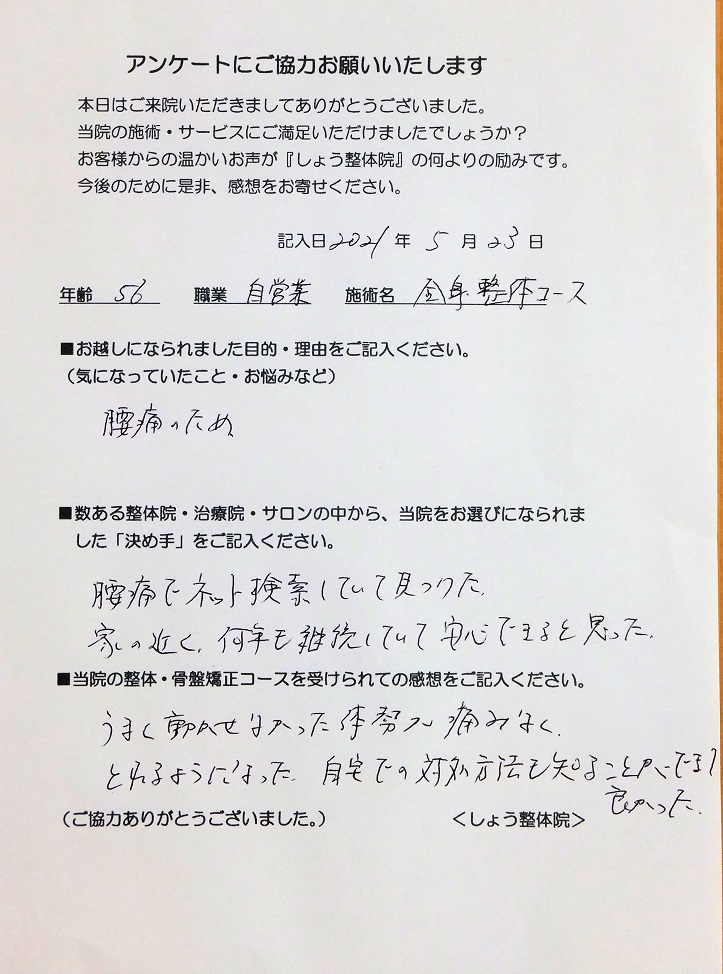 アンケートにご協力お願いいたします
本日はご来院いただきましてありがとうございました。
当院の施術・サービスにご満足いただけましたでしょうか？
お客様からの温かいお声が『しょう整体院』の何よりの励みです。
今後のために是非、感想をお寄せください。
記入日 2021 年 5 月 23 日
年齢 56 職業 自営業 施術名 全身整体コース
■お越しになられました目的・理由をご記入ください。
（気になっていたこと・お悩みなど）
腰痛のため
■数ある整体院・治療院・サロンの中から、当院をお選びになられま
した「決め手」をご記入ください。
腰痛でネット検索していて見つけた。
家の近く、何年も継続していて安心できると思った。
■当院の整体・骨盤矯正コースを受けられての感想をご記入ください。
うまく動かせなかった体勢が痛みなく、
とれるようになった。自宅での対処方法も知ることができて
良かった。
（ご協力ありがとうございました。） ＜しょう整体院＞